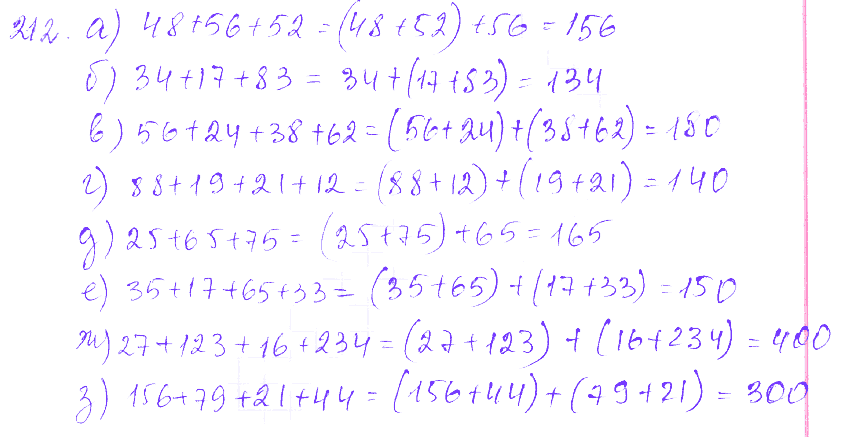 212. а) 48+56+52=(48+52)+56=156
б) 34+17+83=34+(17+83)=134
в) 56+24+38+62=(56+24)+(38+62)=180
г) 88+19+21+12=(88+12)+(19+21)=140
д) 25+65+75=(25+75)+65=165
е) 35+17+65+33=(35+65)+(17+33)=150
ж) 27+123+16+234=(27+123)+(16+234)=400
з) 156+79+21+44=(156+44)+(79+21)=300